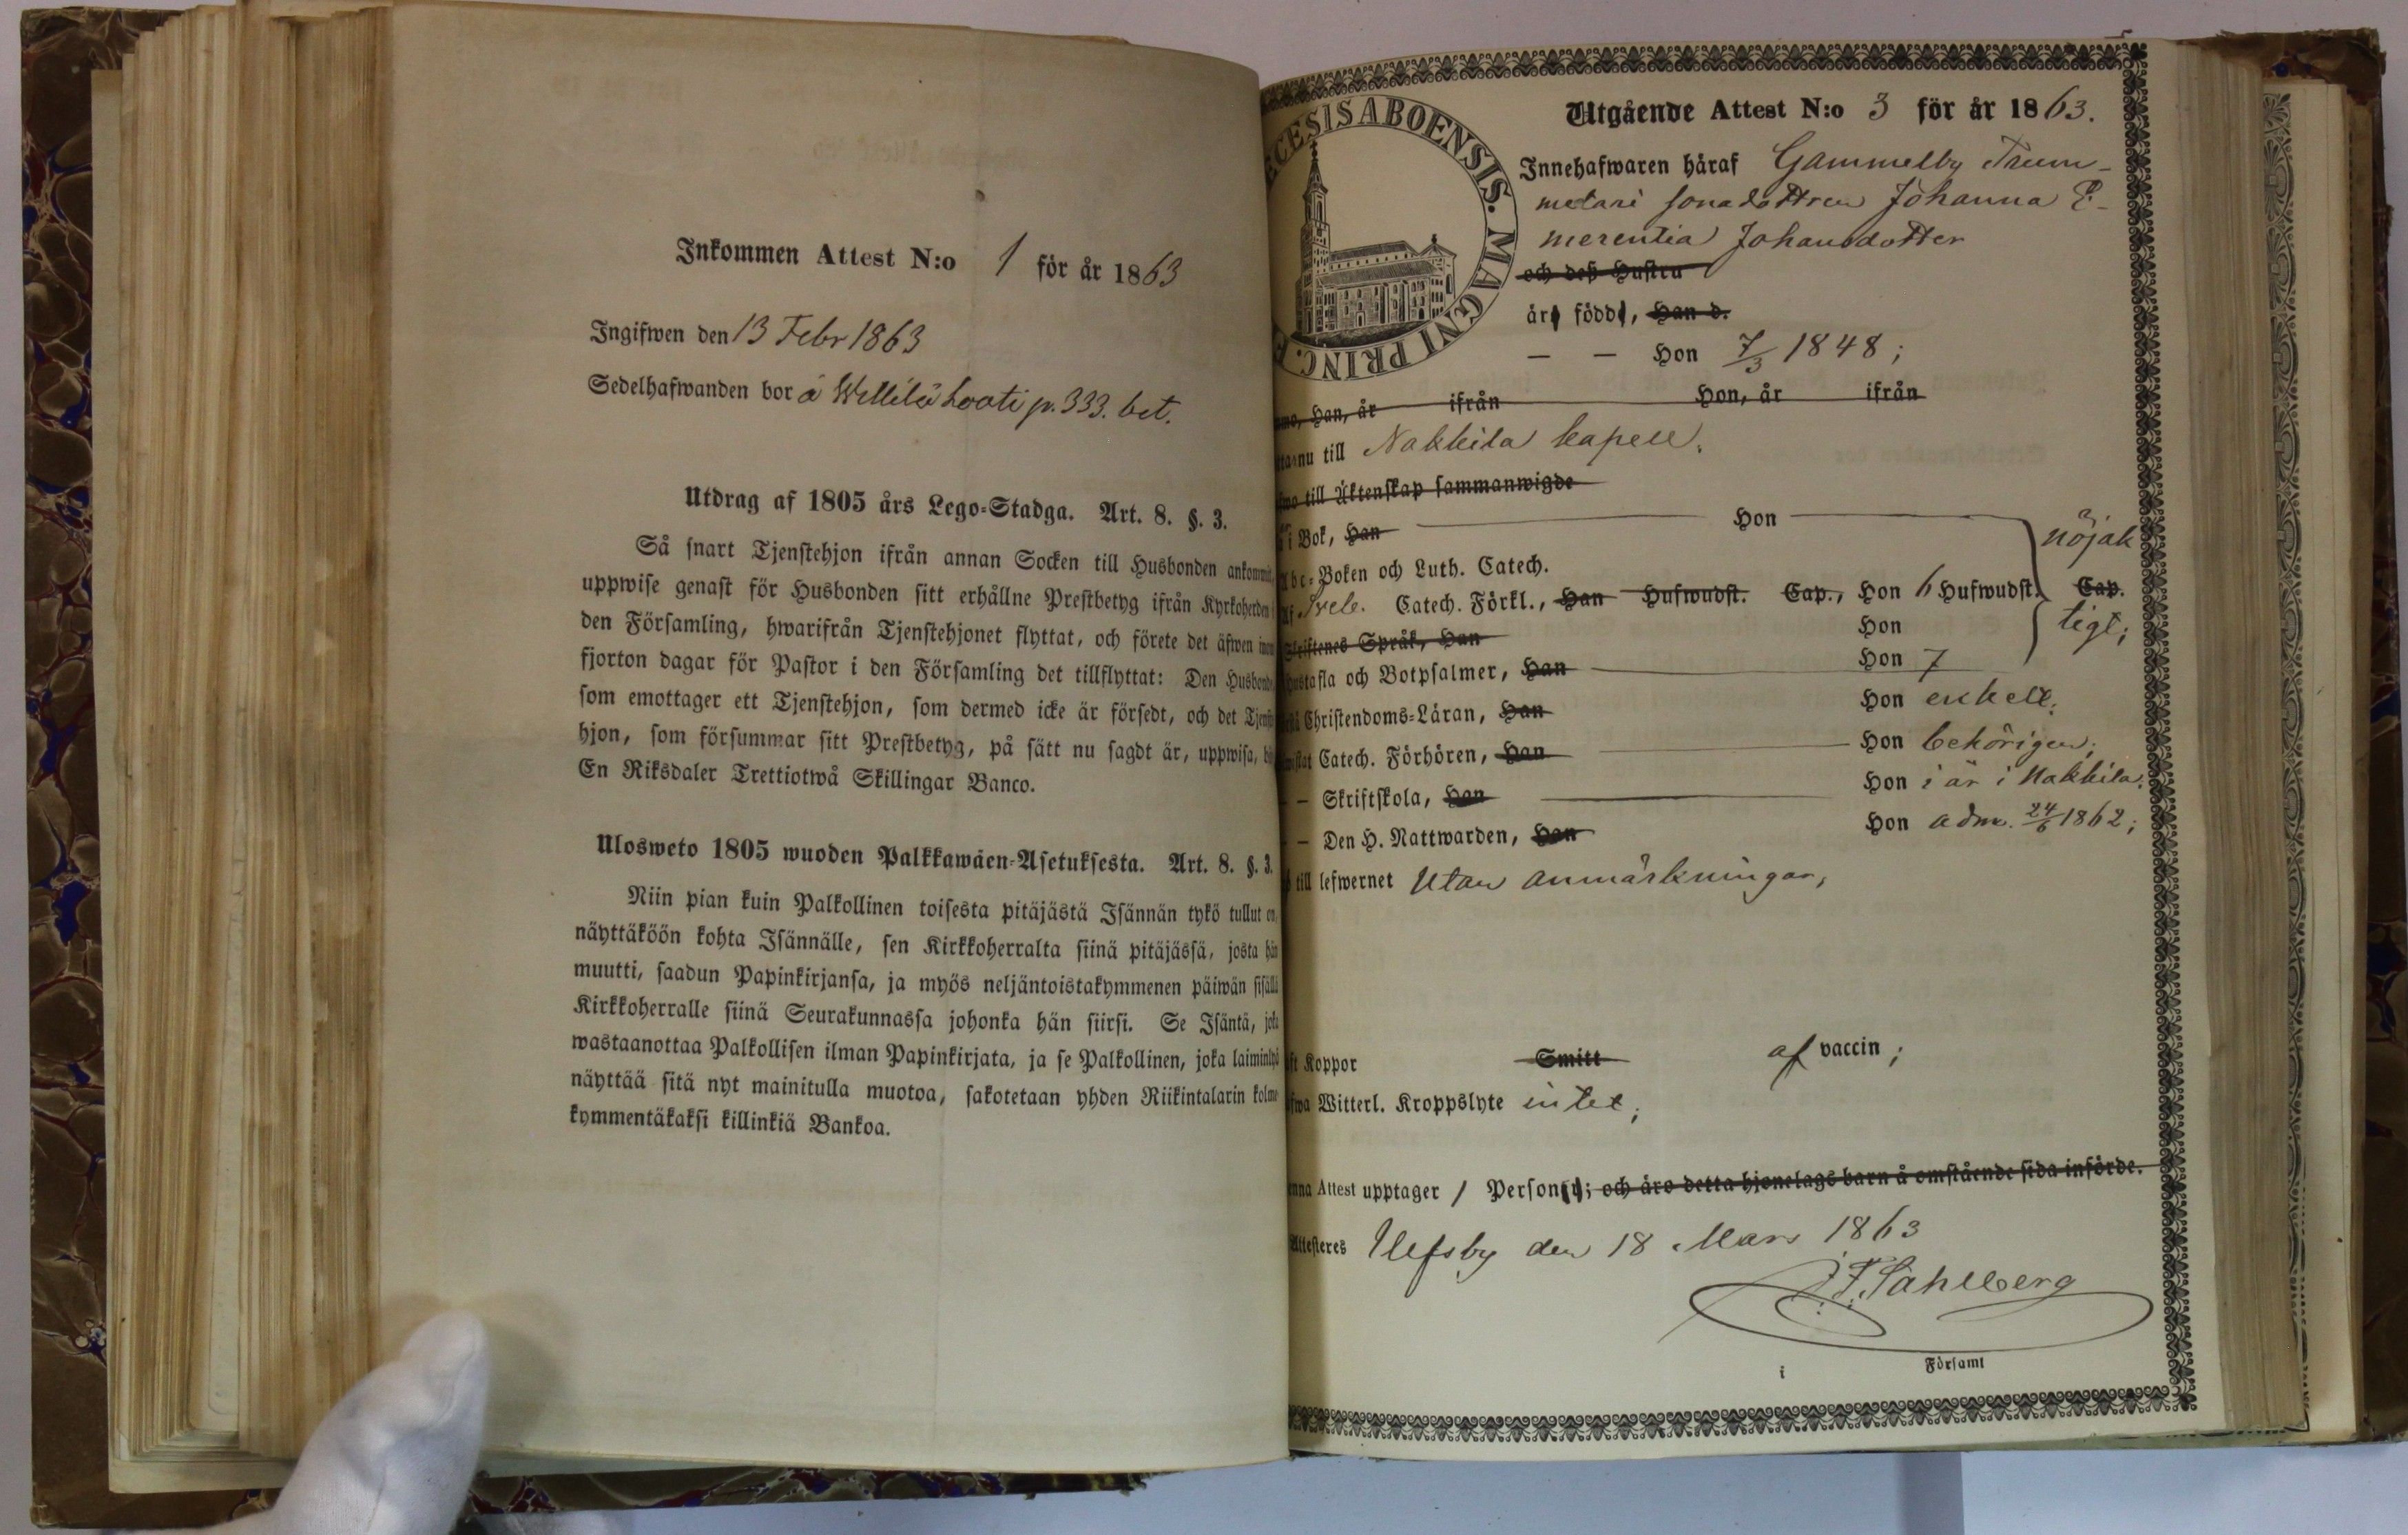 Inkommen Attest N:o 1 för år 1863
Ingifwen den 13 Febr 1863
Sedelhafwanden bor å p. 333. bet.
Utdrag af 1805 års Lego-Stadga. Art. 8. §. 3.
Så snart Tjenstehjon ifrån annan Socken till Husbonden
uppwise genast för Husbonden sitt erhållne Prestbetyg ifrån Kyrkoherden
den Församling, hwarifrån Tjenstehjonet flyttat, och förete det äfwen
fjorton dagar för Pastor i den Församling det tillflyttat: Den
som emottager ett Tjenstehjon, som dermed icke är försedt, och det
hjon, som försummar sitt Prestbetyg, på sätt nu sagdt är, uppwisa,
En Riksdaler Trettiotwå Skillingar Banco.
Ulosweto 1805 wuoden Palkkawäen-Asetuksesta. Art. 8. §. 3.
Niin pian kuin Palkollinen toisesta pitäjästä Isännän tykö tullut on,
näyttäköön kohta Isännälle, sen Kirkkoherralta siinä pitäjässä, josta hän
muutti, saadun Papinkirjansa, ja myös neljäntoistakymmenen päiwän sisällä
Kirkkoherralle siinä Seurakunnassa johonka hän siirsi. Se Isäntä, joka
wastaanottaa Palkollisen ilman Papinkirjata, ja se Palkollinen, joka
näyttää sitä nyt mainitulla muotoa, sakotetaan yhden Riikintalarin kolme
kymmentäkaksi killinkiä Bankoa.
ECESIS ABOENSIS. MAGNI PRINC. F
Utgående Attest N:o 3 för år 1863.
Innehafwaren häraf Gammelby Trum-
metari sonadottren Johanna E-
merentia Johansdotter
och deß Hustru
är född, Han d.
— — Hon 7/3 1848;
Han, år ifrån Hon, år ifrån
nu till Nakkila kapell.
till Äktenskap sammanwigde
i Bok, Han Hon nöjak
Abc-Boken och Luth. Catech.
Af Sveb. Catech. Förkl., Han Hufwudst. Cap., Hon 6 Hufwudst. Cap.
Skriftenes Språk, Han Hon tigt;
Hustafla och Botpsalmer, Han Hon 7
Christendoms-Läran, Han Hon enkelt;
Catech. Förhören, Han Hon behörigen;
— Skriftskola, Han Hon i år i Nakkila.
— Den H. Nattwarden, Han Hon adm. 24/6 1862;
till lefwernet Utan anmärkningar,
Koppor Smitt af vaccin;
Witterl. Kroppslyte intet;
Attest upptager 1 Person; och äro detta hjonelags barn å omstående sida införde.
Attesteres Ulfsby den 18 Mars 1863
J. F. Sahlberg
i Församl